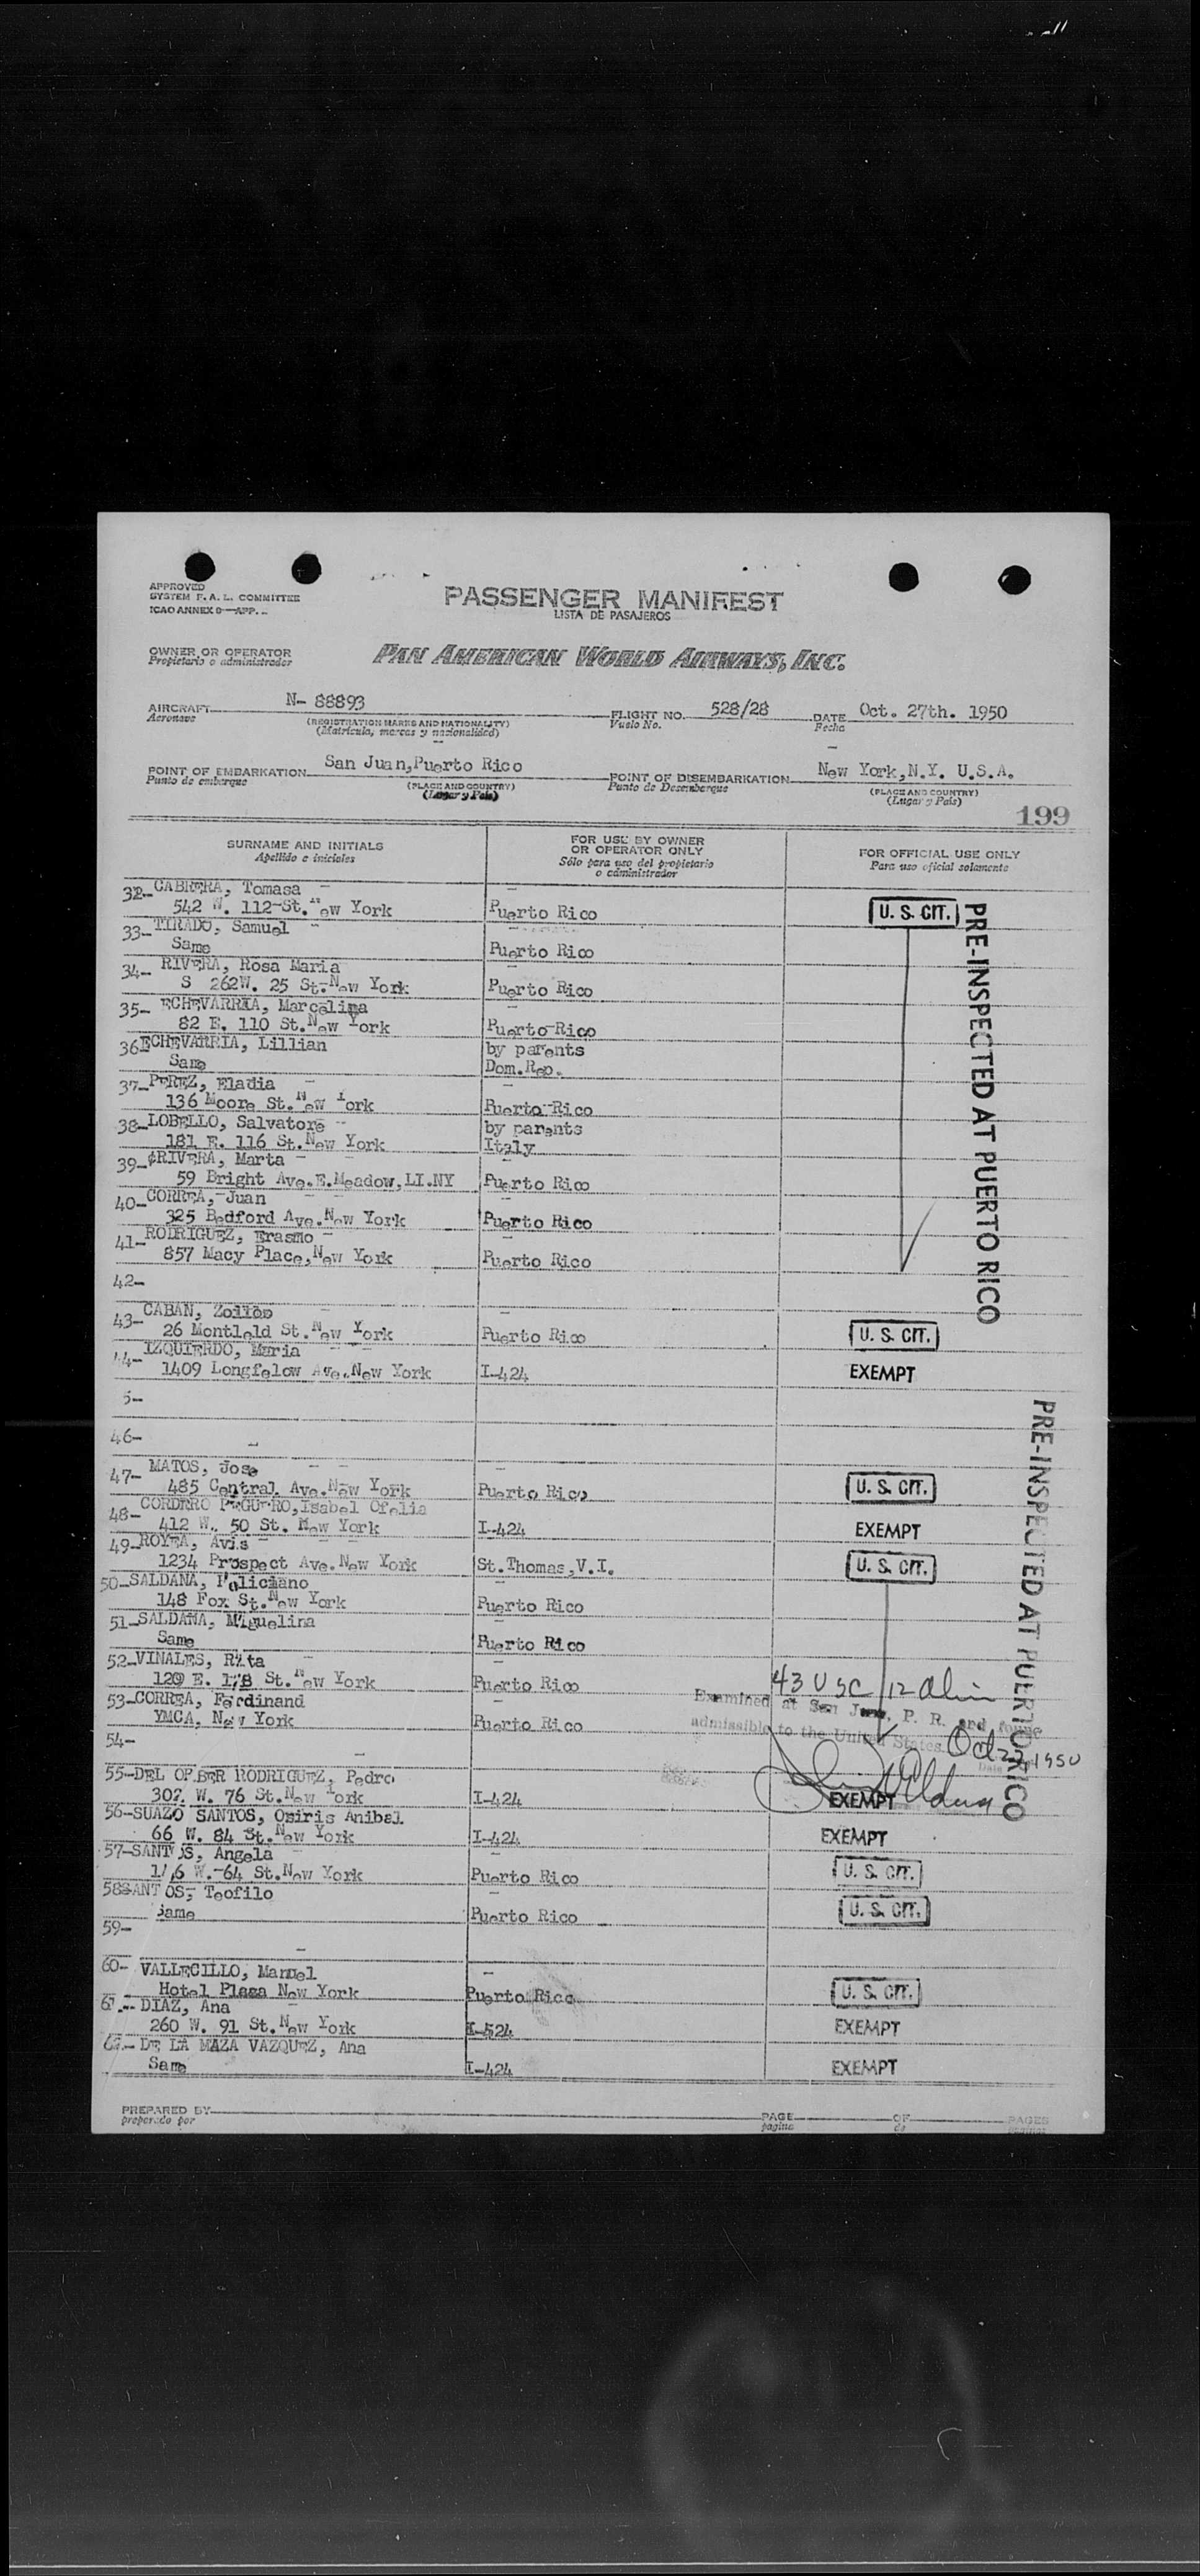 APPROVED
SYSTEM F. A. L. COMMITTEE
ICAO ANNEX 9—APP.
PASSENGER MANIFEST
LISTA DE PASAJEROS
OWNER OR OPERATOR
Propietario o administrador
PAN AMERICAN WORLD AIRWAYS, INC.
AIRCRAFT N- 88893 FLIGHT NO. 528/28 DATE Oct. 27th. 1950
Aeronave (REGISTRATION MARKS AND NATIONALITY) Vuelo No. Fecha
(Matricula, marcas y nacionalidad)
POINT OF EMBARKATION San Juan,Puerto Rico POINT OF DISEMBARKATION New York,N.Y. U.S.A.
Punto de embarque (PLACE AND COUNTRY) Punto de Desembarque (PLACE AND COUNTRY)
(Lugar y País) (Lugar y País)
199
SURNAME AND INITIALS FOR USE BY OWNER OR OPERATOR ONLY FOR OFFICIAL USE ONLY
Apellido e iniciales Sólo para uso del propietario o administrador Para uso oficial solamente
32- CABRERA, Tomasa
542 W. 112-St. New York Puerto Rico U. S. CIT.
33- TIRADO, Samuel
Same Puerto Rico
34- RIVERA, Rosa Maria
S 262W. 25 St-New York Puerto Rico
35- ECHEVARRIA, Marcelina
82 E. 110 St.New York Puerto-Rico
36 ECHEVARRIA, Lillian by parents
Same Dom.Rep.
37- PEREZ, Eladia
136 Moore St. New York Puerto-Rico
38- LOBELLO, Salvatore by parents
181 E. 116 St.New York Italy
39- RIVERA, Marta
59 Bright Ave.E.Meadow,LI.NY Puerto Rico
40- CORREA, Juan
325 Bedford Ave.New York Puerto Rico
41- RODRIGUEZ, Erasmo
857 Macy Place,New York Puerto Rico
42-
PRE-INSPECTED AT PUERTO RICO
43- CABAN,
26 St.New York Puerto Rico U. S. CIT.
44- IZQUIERDO, Maria
1409 Longfelow Ave.New York I-424 EXEMPT
5-
46-
47- MATOS, Jose
485 Central Ave.New York Puerto Rico U. S. CIT.
48- CORDERO PEGUERO,Isabel Ofelia
412 W. 50 St. New York I-424 EXEMPT
49- ROYEA, Avis
1234 Prospect Ave.New York St.Thomas,V.I. U. S. CIT.
50- SALDANA, Feliciano
148 Fox St.New York Puerto Rico
51- SALDANA, Miguelina
Same Puerto Rico
52- VINALES, Rita
E. 178 St.New York Puerto Rico 43 USC / 12 alien
53- CORREA, Ferdinand Examined at San Juan, P. R. and found
YMCA, New York Puerto Rico admissible to the United States. Oct 27 1950
54- Date
55- DEL ORBER RODRIGUEZ, Pedro
302 W. 76 St.New York I-424 EXEMPT
56- SUAZO SANTOS, Osiris Anibal
66 W. 84 St.New York I-424 EXEMPT
57- SANTOS, Angela
W.-64 St.New York Puerto Rico U. S. CIT.
58 SANTOS, Teofilo
Same Puerto Rico U. S. CIT.
59-
PRE-INSPECTED AT PUERTO RICO
60- VALLECILLO, Manuel
Hotel Plaza New York Puerto Rico U. S. CIT.
61- DIAZ, Ana
260 W. 91 St.New York I-524 EXEMPT
62- DE LA MAZA VAZQUEZ, Ana
Same I-424 EXEMPT
PREPARED BY PAGE OF PAGES
preparado por pagina de paginas